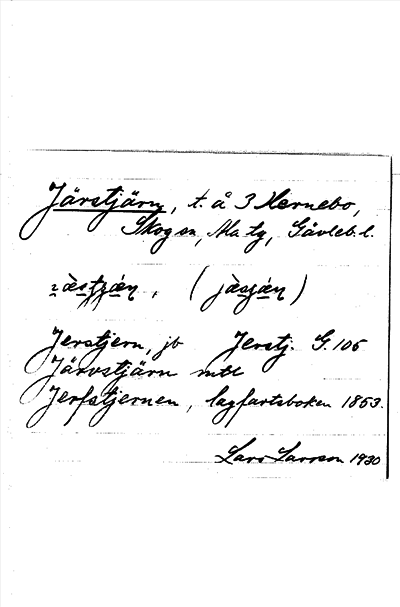 Järstjärn, t. å 3 Hernebo,
Skogen, Ma tg, Gävleb. l.
( jä̀sʃä́ṇ )
Jerstjern, jb Jerstj. G. 105
Järvstjärn mtl
Jerfstjernen, lagfartsboken 1853.
Lars Larsson 1930